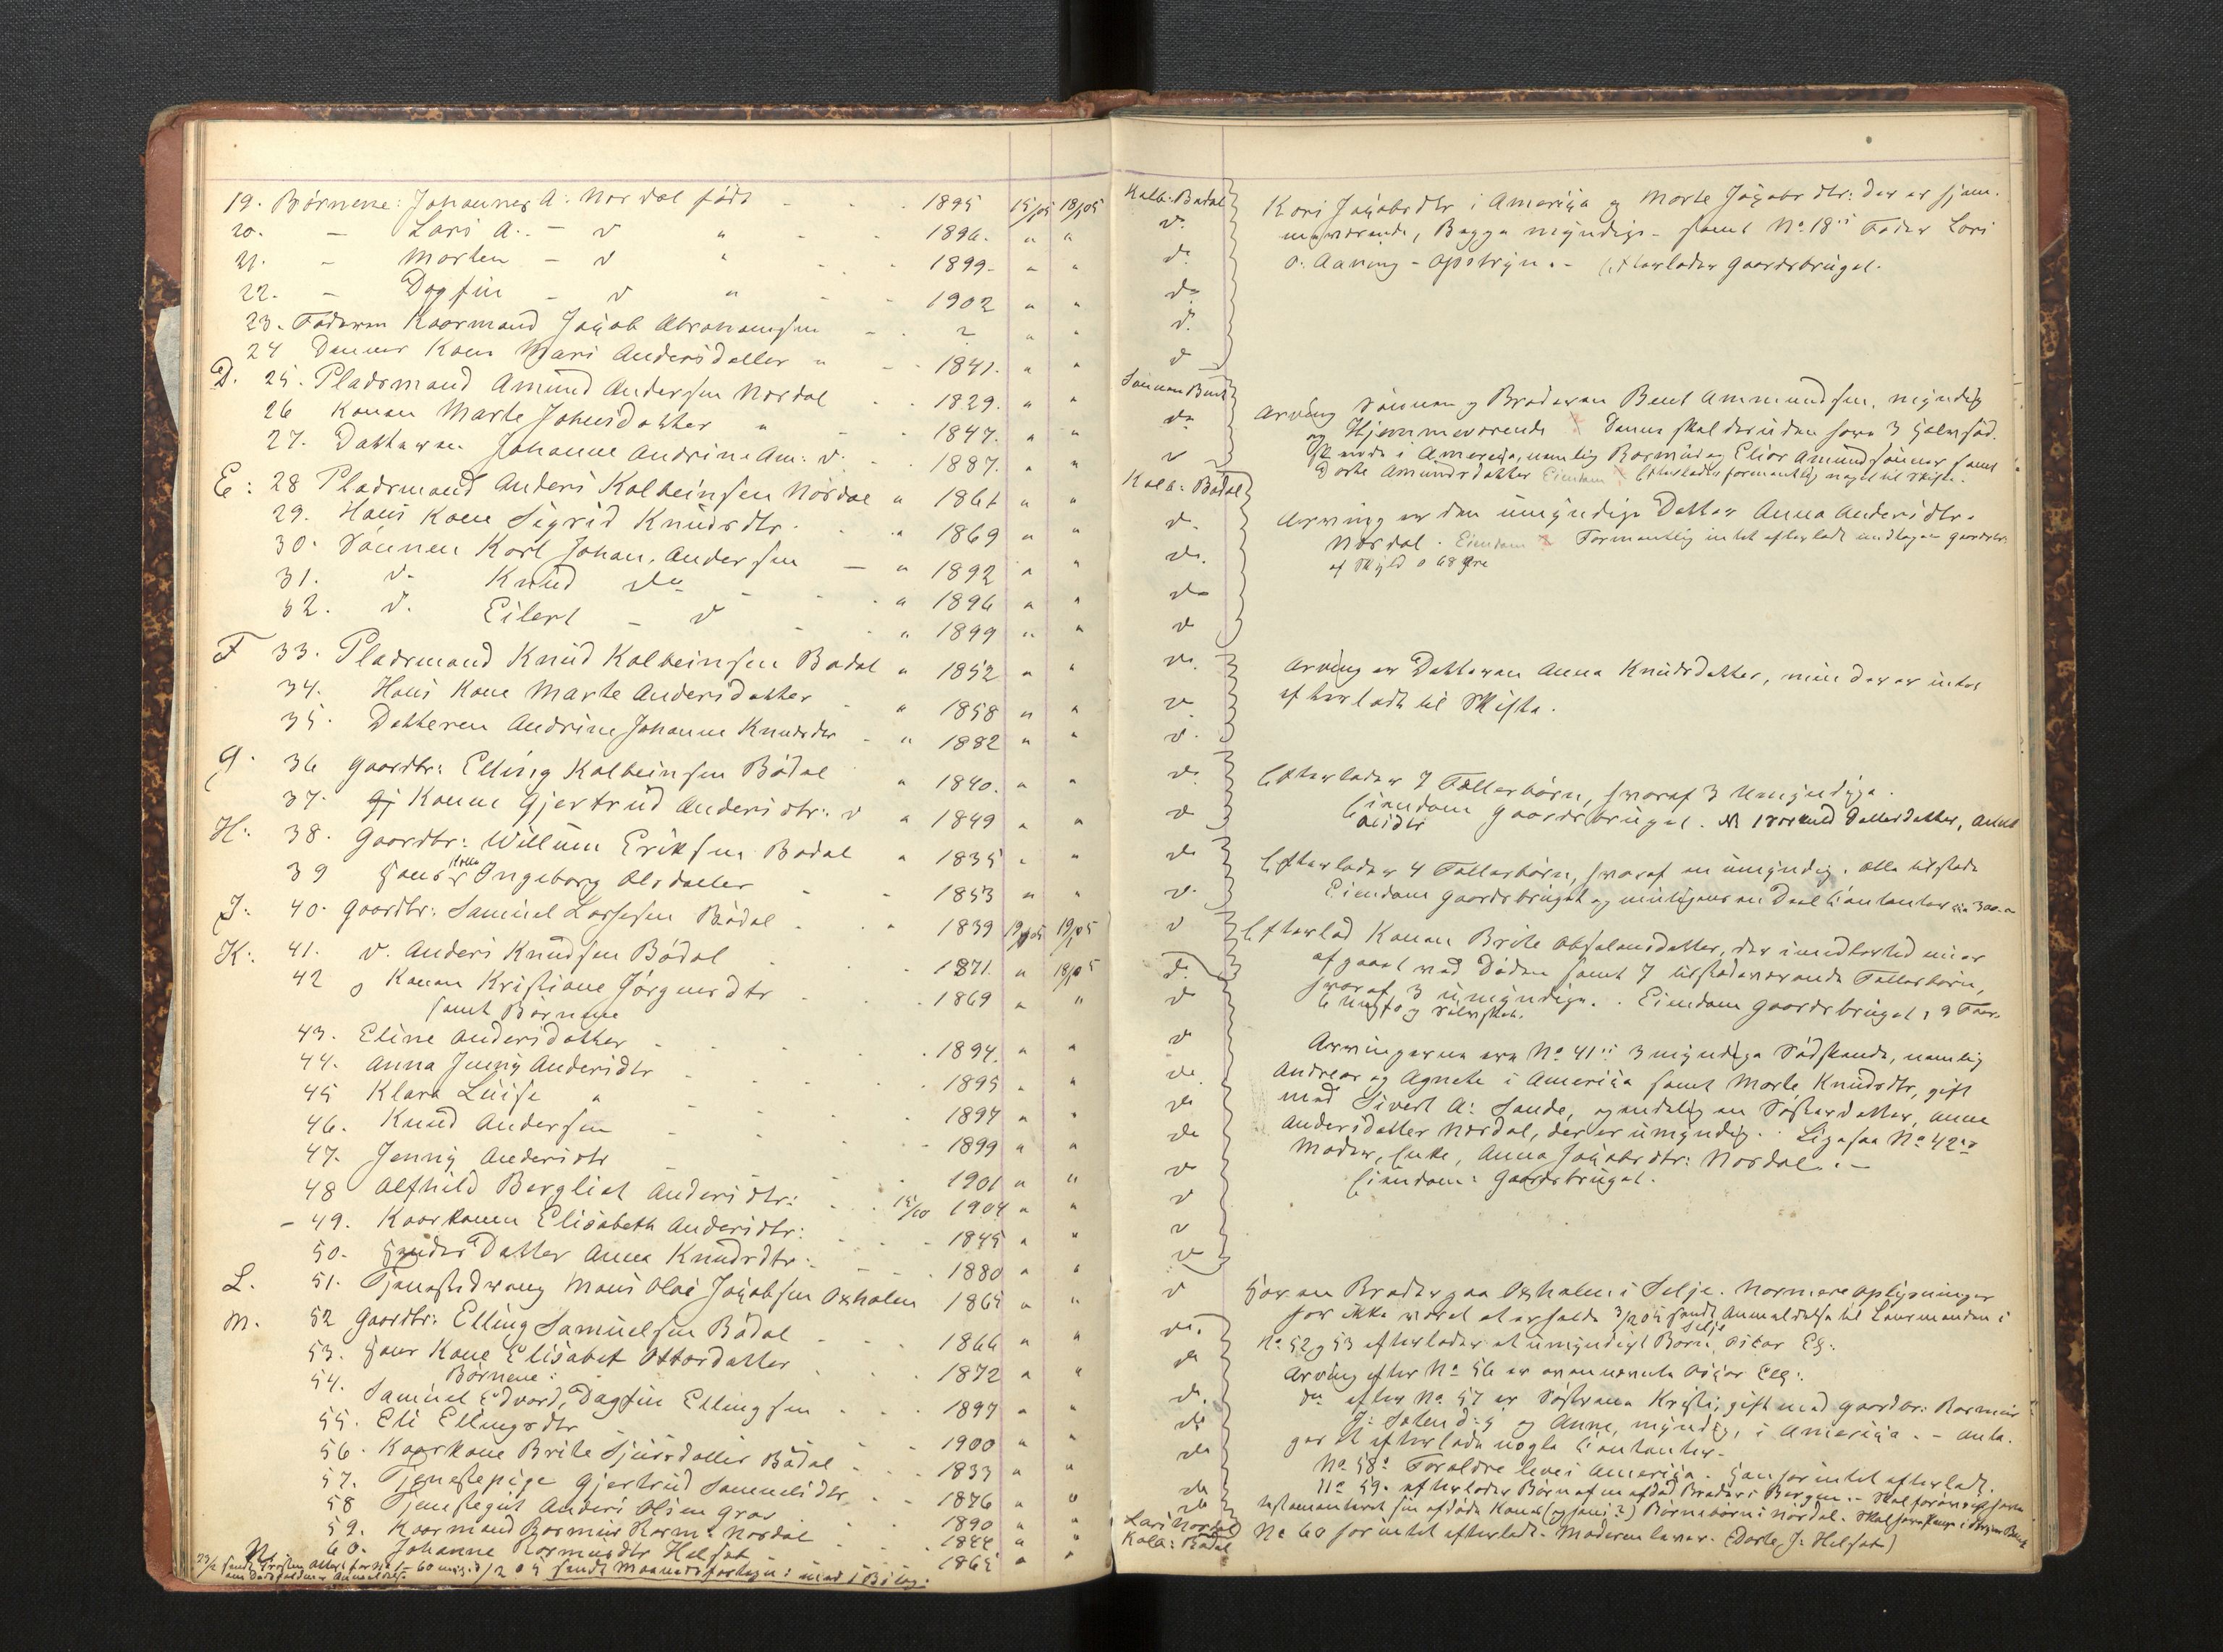 19. Børnene: Johannes A: Nordal født - - - 1895 15/1 05 18/1 05
20. - Lars A. - d " - - 1896. " "
21. - Morten - d " - - 1899. " "
22. - Dagfin - d " - - 1902 " "
23. Faderen Kaarmand Jakob Abrahamsen - - ? " "
24 Dennes Kone Mari Andersdatter " - - 1841. " "
D. 25. Pladsmand Amund Andersen Nordal - - 1829. " "
26 Konen Marte Johnsdatter " - - 1847. " "
27. Datteren Johanne Andrine Am: d. - - 1887. " "
E: 28 Pladsmand Anders Kolbeinsen Nordal " 1861 " "
29. Hans Kone Sigrid Knudsdtr. - " 1869 " "
30. Sønnen Karl Johan Andersen - " 1892 " "
31. d. Knud do - - " 1896 " "
32. d. Eilert - d - - " 1899 " "
F 33. Pladsmand Knud Kolbeinsen Bødal " 1852 " "
34. Hans Kone Marte Andersdatter - " 1858 " "
35. Datteren Andrine Johanne Knudsdtr - " 1882 " "
G. 36 Gaardbr: Elling Kolbeinsen Bødal " 1840. " "
37. Konen Gjertrud Andersdtr: d " 1849 " "
H: 38. Gaardbr: Willum Eriksen Bødal " 1835 " "
39 Hans Ingeborg Olsdatter - - 1853 " "
J: 40. Gaardbr: Samuel Lassesen Bødal - " 1839 19/1 05 19/1 05
K: 41. d. Anders Knudsen Bødal - - 1871. " 18/1 05
42 og Konen Kristiane Jørgensdtr - - 1869 " "
samt Børnene
43. Eline Andersdatter - - - 1894. " "
44. Anna Jenny Andersdtr - - - 1895 " "
45 Klara Luise " - - - 1897 " "
46. Knud Andersen - - - 1899 " "
47. Jenny Andersdtr - - - 1901 " "
48 Alfhild Bergliot Andersdtr: - - 15/10 1904 " "
- 49. Kaarkonen Elisabeth Andersdtr: - - 1845 " "
50. Hendes Datter Anna Knudsdtr - - 1880 " "
L. 51. Tjenestedreng Mons Olai Jakobsen Oxholm 1865 " "
M. 52 Gaardbr: Elling Samuelsen Bødal - - 1866 " "
53. Hans Kone Elisabet Ottersdatter - - 1872 " "
Børnene:
54. Samuel Edvard, Dagfin Ellingsen - - 1897 " "
55. Eli Ellingsdtr - - 1900 " "
56. Kaarkone Brite Sjursdatter Bødal - - 1833 " "
57. Tjenestepige Gjertrud Samuelsdtr - - 1876 " "
58 Tjenestegut Anders Olsen - - 1890 " "
59. Kaarmand Rasmus Rasm: Nordal - - " "
60. Johanne Rasmusdtr Helset - - 1865 " "
Kolb: Bødal
Kari Jakobsdtr i Amerika og Marte Jakobsdtr: der er hjem-
meværende, Begge myndige - samt No 18's Fader Lars
O: Aaning - Opstryn. - Efterlader Gaardsbruget.
Sønnen Bent
Arving Sønnen og Broderen Bent Ammundsen, myndig
og Hjemmeværende Denne skal desuden have 3
i Amerika, nemlig Rasmus og Elias Amundsønner samt
Dorte Amundsdatter Eiendom Efterlader formentlig noget til Skifte.
Kolb: Bødal
Arving er den umyndige Datter Anna Andersdtr.
Nordal. Eiendom Formentlig intet efterladt undtagen Gaardsbr.
af Skyld 0 68 Øre
Arving er Datteren Anna Knudsdatter, men der er intet
efterladt til Skifte.
Efterlader 7 Fællesbørn, hvoraf 3 Umyndige.
Eiendom Gaardsbruget. Datterdatter, Anna
Olsdtr
Efterlader 4 Fællesbørn, hvoraf en umyndig. Alle tilstede
Eiendom Gaardsbruget og muligens en Deel Contanter ca 300.-
Efterlod Konen Brite Absalonsdatter, der imidlertid nu er
afgaaet ved Døden samt 7 tilstedeværende Fællesbørn,
hvoraf 3 umyndige. . Eiendom Gaardsbruget, 9 Faar
Arvingerne ere No 41's 3 myndige Sødskende, nemlig
Andreas og Agnete i Amerika samt Marte Knudsdtr, gift
med Sivert A: Sande, og endelig en Søsterdatter, Anna
Andersdatter Nordal, der er umyndig. Ligesaa No 42's
Moder, Enke, Anna Jakobsdtr: Nordal. -
Eiendom: Gaardsbruget.
Har en Broder paa Oxholm i Selje. Nærmere Oplysninger
har ikke været at erholde 3/2 05 sendt Anmeldelse til Lensmanden i
Selje
No 52 og 53 efterlader et umyndigt Barn, Oskar Ell:
Arving efter No 56 er ovennævnte Oskar Ell:.
do efter No 57 er Søstrene Kristi, gift med Gaardbr: Rasmus
og Anne, myndig, i Amerika. - Anta-
ges at efterlade nogle Contanter -
No 58s Forældre leve i Amerika. Han har intet efterladt.
No 59. efterlader Børn af en afdød Broder i Bergen. -
testamenteret sin afdøde Kones (og hans?) Børnebørn i Nordal.
Lars Nordal
Kolb: Bødal
No 60 har intet efterladt. Moderen lever. (Dorte J: Helset)